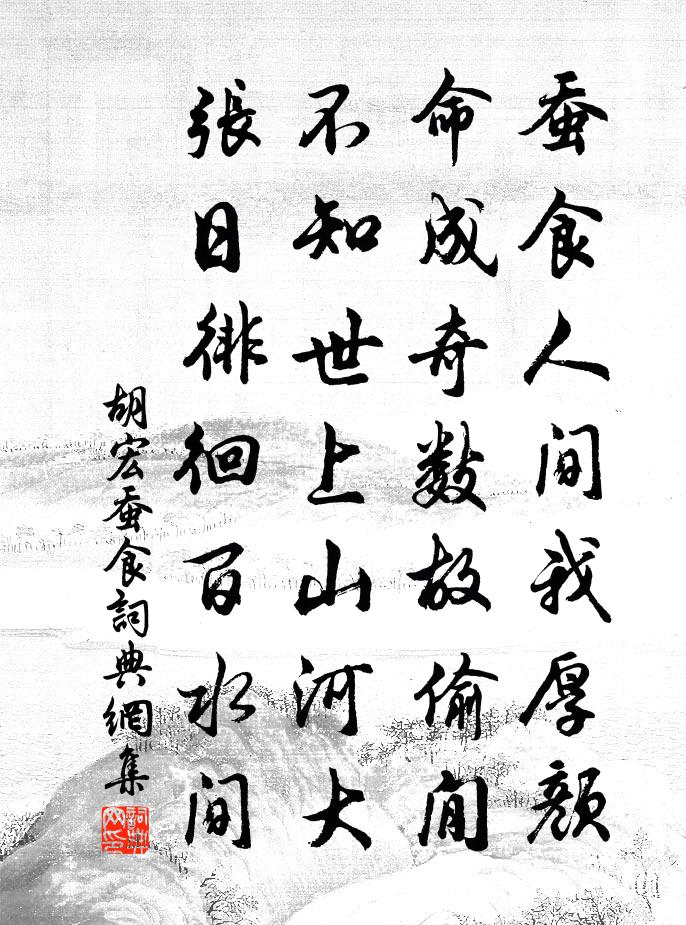 蚕食人間我厚顏
命成奇數故偷閒
不知世上山河大
張日徘徊百水間
胡宏蚕食詞典網集